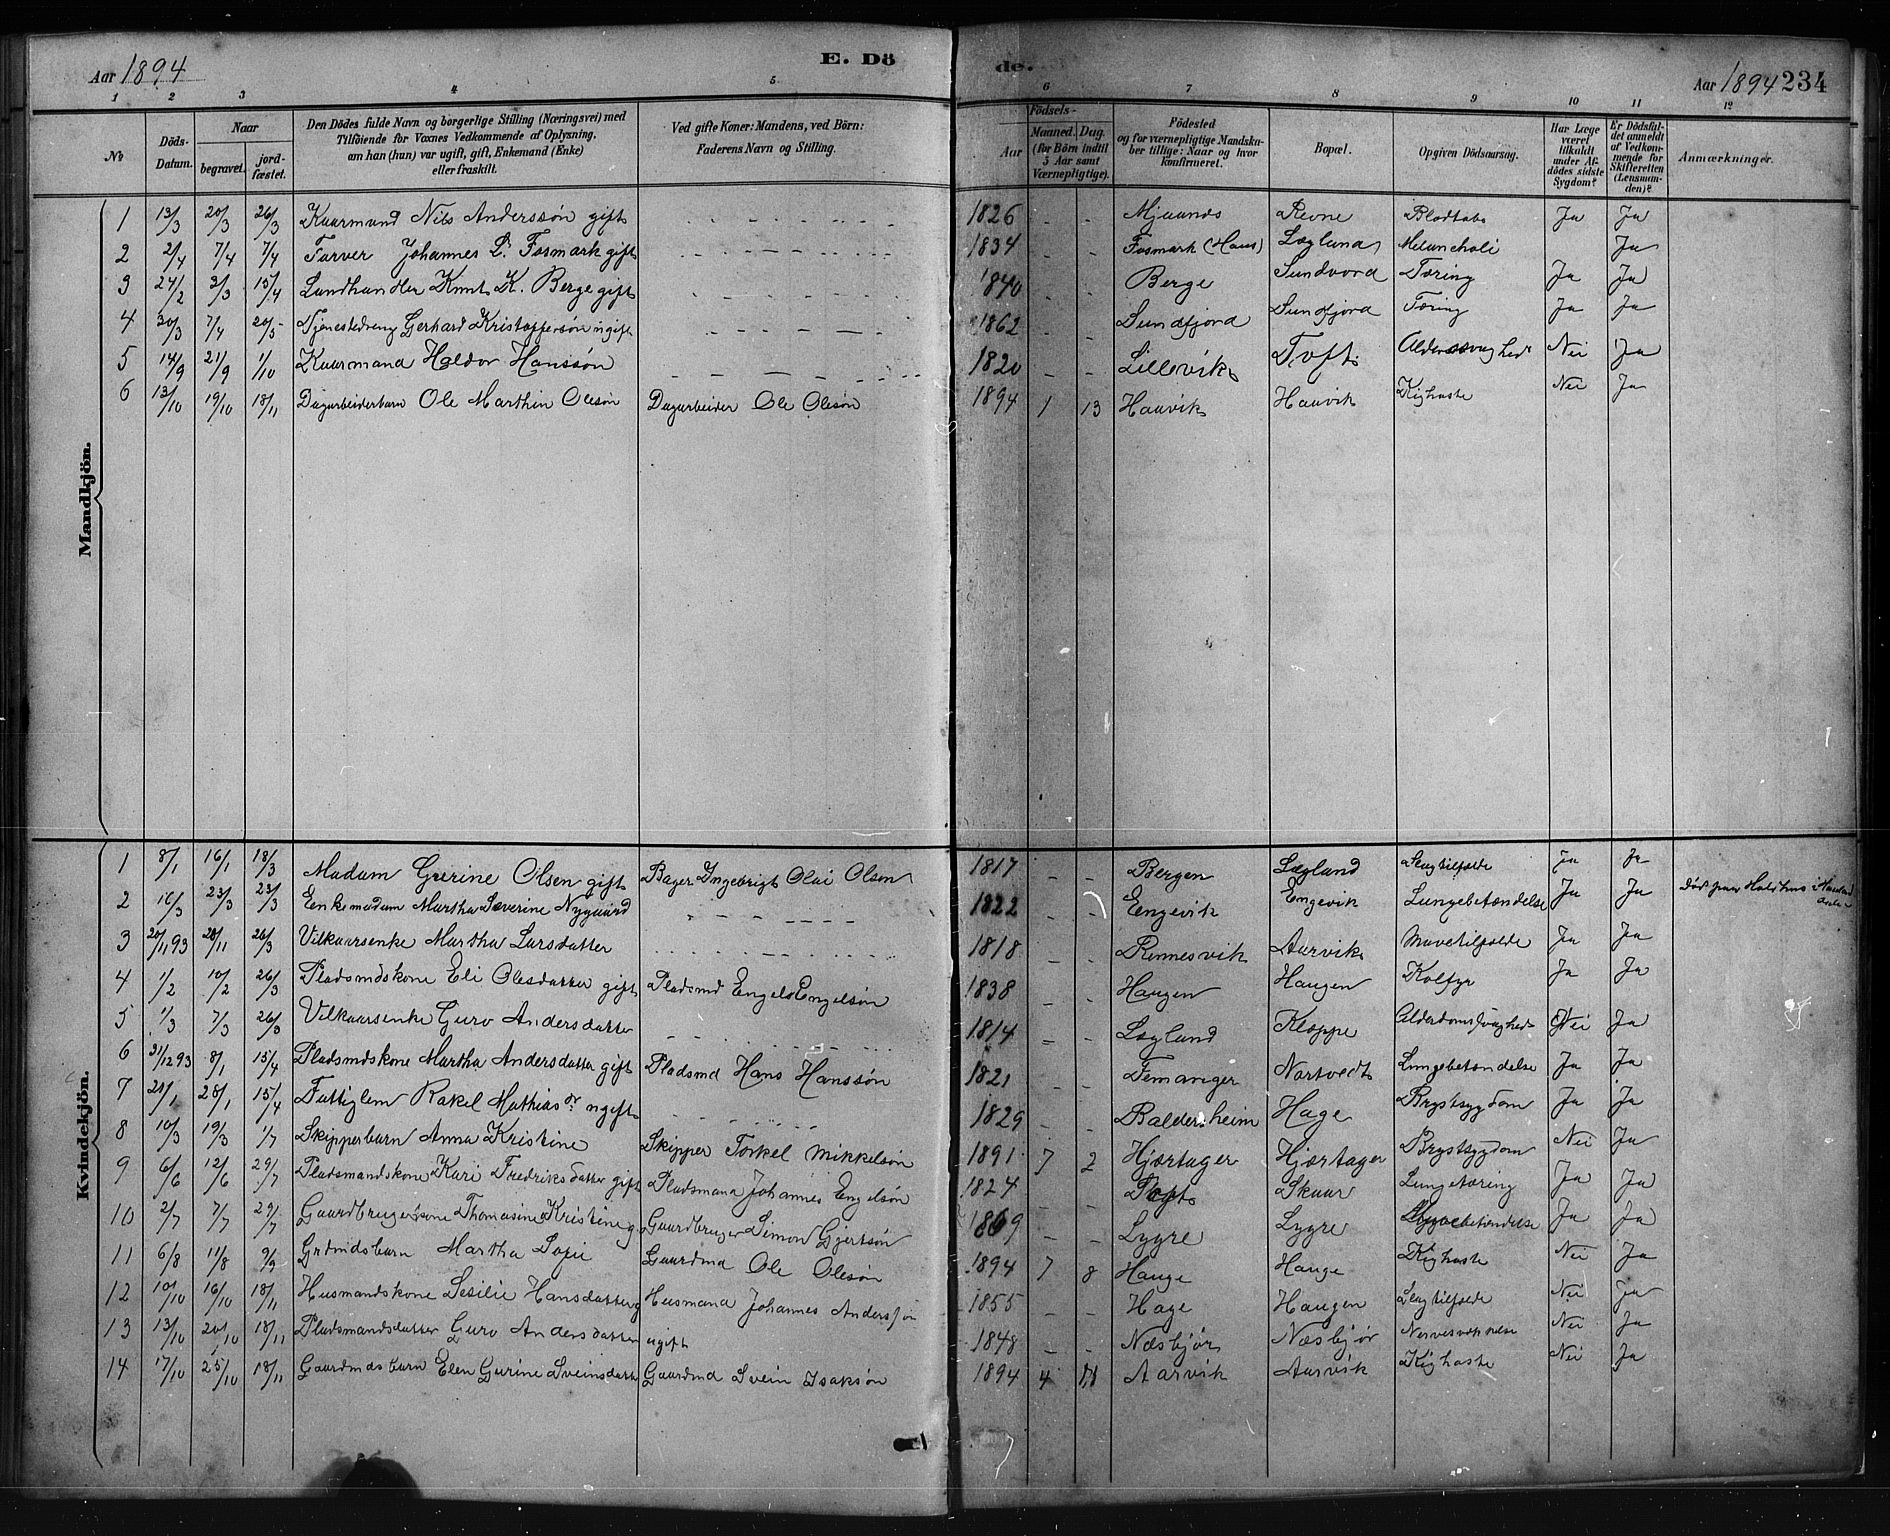 Aar 1894
E. Dö
de.
Aar 1894 234
1 2 3 4 5 6 7 8 9 10 11 12
No
Döds-Datum.
Naar
begravet.
jord-fæstet.
Den Dödes fulde Navn og borgerlige Stilling (Næringsvei) med
Tilföiende for Voxnes Vedkommende af Oplysning,
om han (hun) var ugift, gift, Enkemand (Enke)
eller fraskilt.
Ved gifte Koner: Mandens, ved Börn:
Faderens Navn og Stilling.
Födsels-
Aar
Maaned. Dag.
(for Börn indtil
5 Aar samt
Værnepligtige).
Födested
og for værnepligtige Mandska-
ber tillige: Naar og hvor
konfirmeret.
Bopæl.
Opgiven Dödsaarsag.
Har Læge
været
tilkaldt
under Af-
dödes sidste
Sygdom?
Er Dödsfal-
det anmeldt
af Vedkom-
mende for
Skifteretten
(Lensman-
den)?
Anmærkninger.
Mandkjön.
1 13/3 20/3 26/3 Kaarmand Nils Anderssön gift - 1826 - - Mjaanæs Revne Blodtab Ja Ja
2 2/4 7/4 7/4 Farver Johannes L. Fosmark gift - 1834 - - Fosmark (Haus) Lægland Melancholi Ja
3 24/2 3/3 15/4 Landhandler Knut K. Berge gift - 1840 - - Berge Sundvord Tæring Ja Ja
4 30/3 7/4 20/5 Tjenestedreng Gerhard Kristoffersön ugift - 1862 - - Sundfjord Sundfjord Tæring Ja Ja
5 14/9 21/9 1/10 Kaarmand Haldor Hanssön - 1820 - - Lillevik Tofte Alderssvaghed Nei Ja
6 13/10 19/10 18/11 Dagarbeiderbarn Ole Marthin Olesön Dagarbeider Ole Olesön 1894 1 13 Haavik Haavik Kighoste Nei Ja
Kvindekjön.
1 8/1 16/1 18/3 Madam Grerine Olsen gift Bager Ingebrigt Olai Olsen 1817 - - Bergen Lægland Slagtilfælde Ja Ja
2 16/3 23/3 23/3 Enkemadam Martha Severine Nygaard - 1822 - - Engevik Engevik Lungebetændelse Ja Ja
3 20/11 93 28/11 26/3 Vilkaarsenke Martha Larsdatter - 1818 - - Rennesvik Aarvik Mavetilfælde Ja Ja
4 1/2 10/2 26/3 Pladsmdskone Eli Olesdatter gift Pladsmd Engel Engelsön 1838 - - Haugen Haugen Kolfyr Ja Ja
5 1/3 7/3 26/3 Vilkaarsenke Guro Andersdatter - 1814 - - Lægland Kloppe Alderdomssvaghed Nei Ja
6 31/12 93 8/1 15/4 Pladsmdskone Martha Andersdatter gift Pladsmd Hans Hanssön 1821 - - Femanger Nortvedt Lungebetændelse Ja Ja
7 21/1 28/1 15/4 Fattiglem Rakel Mathiasdr ugift - 1829 Baldersheim Hage Brystsygdom Ja Ja
8 10/3 19/3 1/7 Skipperbarn Anna Kristine Skipper Torkel Mikkelsön 1891 7 2 Hjærtager Hjærtager Brystsygdom Nei Ja
9 6/6 12/6 29/7 Pladsmandskone Kari Fredriksdatter gift Pladsmand Johannes Engelsön 1824 - - Skaar Lungetæring Ja Ja
10 2/7 7/7 29/7 Gaardbrugerkone Thomasine Kristine g Gaardbruger Simon Gjertsön 1869 - - Lygre Lygre Ja Ja
11 6/8 11/8 9/9 Grdmdsbarn Martha Sofie Gaardmd Ole Olesön 1894 7 8 Hauge Hauge Kighoste Nei Ja
12 10/10 16/10 18/11 Husmandskone Sesilie Hansdatter g Husmand Johannes Anderssön 1855 - - Hage Haugen Slagtilfælde Nei Ja
13 13/10 20/10 18/11 Pladsmandsdatter Guro Andersdatter ugift 1848 - - Næsbjør Næsbjør Nervesvækkelse Nei Ja
14 17/10 25/10 18/11 Gaardmdsbarn Elen Gurine Sveinsdatter Gaardmd Svein Isaksön 1894 4 Aarvik Aarvik Kighoste Nei Ja